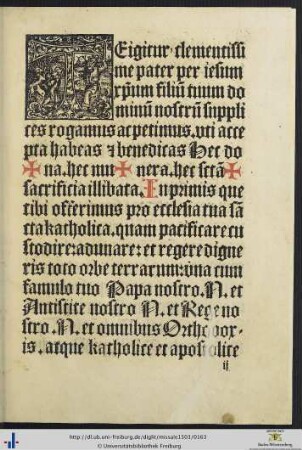 TEigitur clementissi
me pater per iesum
xp̄m filiū tuum do
minū nostrū suppli
ces rogamus ac petimus. vti acce
pta habeas ⁊ benedicas Hec ✠ do
na. hec mu ✠ nera. hec sctā ✠
sacrificia illibata. Inprimis que
tibi offerimus pro ecclesia tua sā
cta katholica. quam pacificare cu
stodire: adunare: et regere digne
ris toto orbe terrarum: vna cum
famulo tuo Papa nostro. N. et
Antistite nostro N. et Rege no
stro. N. et omnibus Orthodox-
is. atque katholice et apostolice
ij
http://dl.ub.uni-freiburg.de/diglit/missale1501/0163
© Universitätsbibliothek Freiburg
Baden-Württemberg